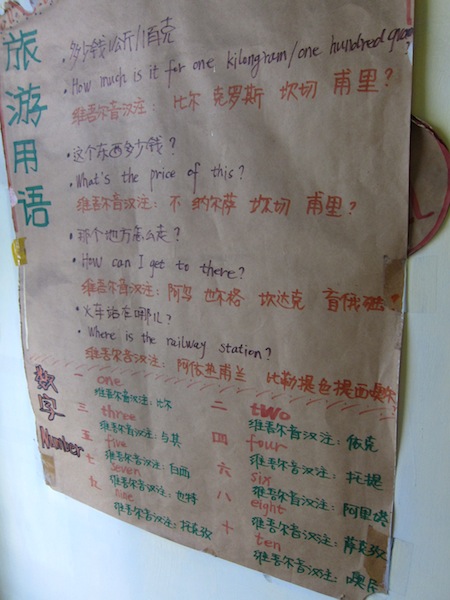 旅游用语
·多少钱1公斤/1百克
·How much is it for one kilongram/one hundred gram
维吾尔音汉注: 比尔 克罗斯 坎切 甫里?
·这个东西多少钱?
·What's the price of this?
维吾尔音汉注: 不 纳尔萨 坎切 甫里?
·那个地方怎么走?
·How can I get to there?
维吾尔音汉注: 阿鸟 也尔格 坎达克
·火车站在哪儿?
·Where is the railway station?
维吾尔音汉注: 阿依热甫兰 比勒提
数字
Number
一 one
维吾尔音汉注: 比尔
二 two
维吾尔音汉注: 依克
三 three
维吾尔音汉注: 与其
四 four
维吾尔音汉注: 托提
五 five
维吾尔音汉注: 白西
六 six
维吾尔音汉注: 阿里塔
七 seven
维吾尔音汉注: 也特
八 eight
维吾尔音汉注: 萨克孜
九 nine
维吾尔音汉注: 托克孜
十 ten
维吾尔音汉注: